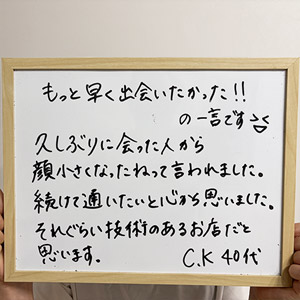 もっと早く出会いたかった!!
の一言です
久しぶりに会った人から
顔小さくなったねって言われました。
続けて通いたいと心から思いました。
それぐらい技術のあるお店だと
思います。
C.K 40代